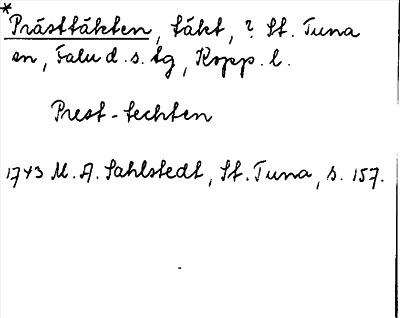 *Prästtäkten, täkt, ? St. Tuna
sn, Falu d.s. tg, Kopp. l.
Prest-techten
1743 M.A. Sahlstedt, St. Tuna, s. 157.